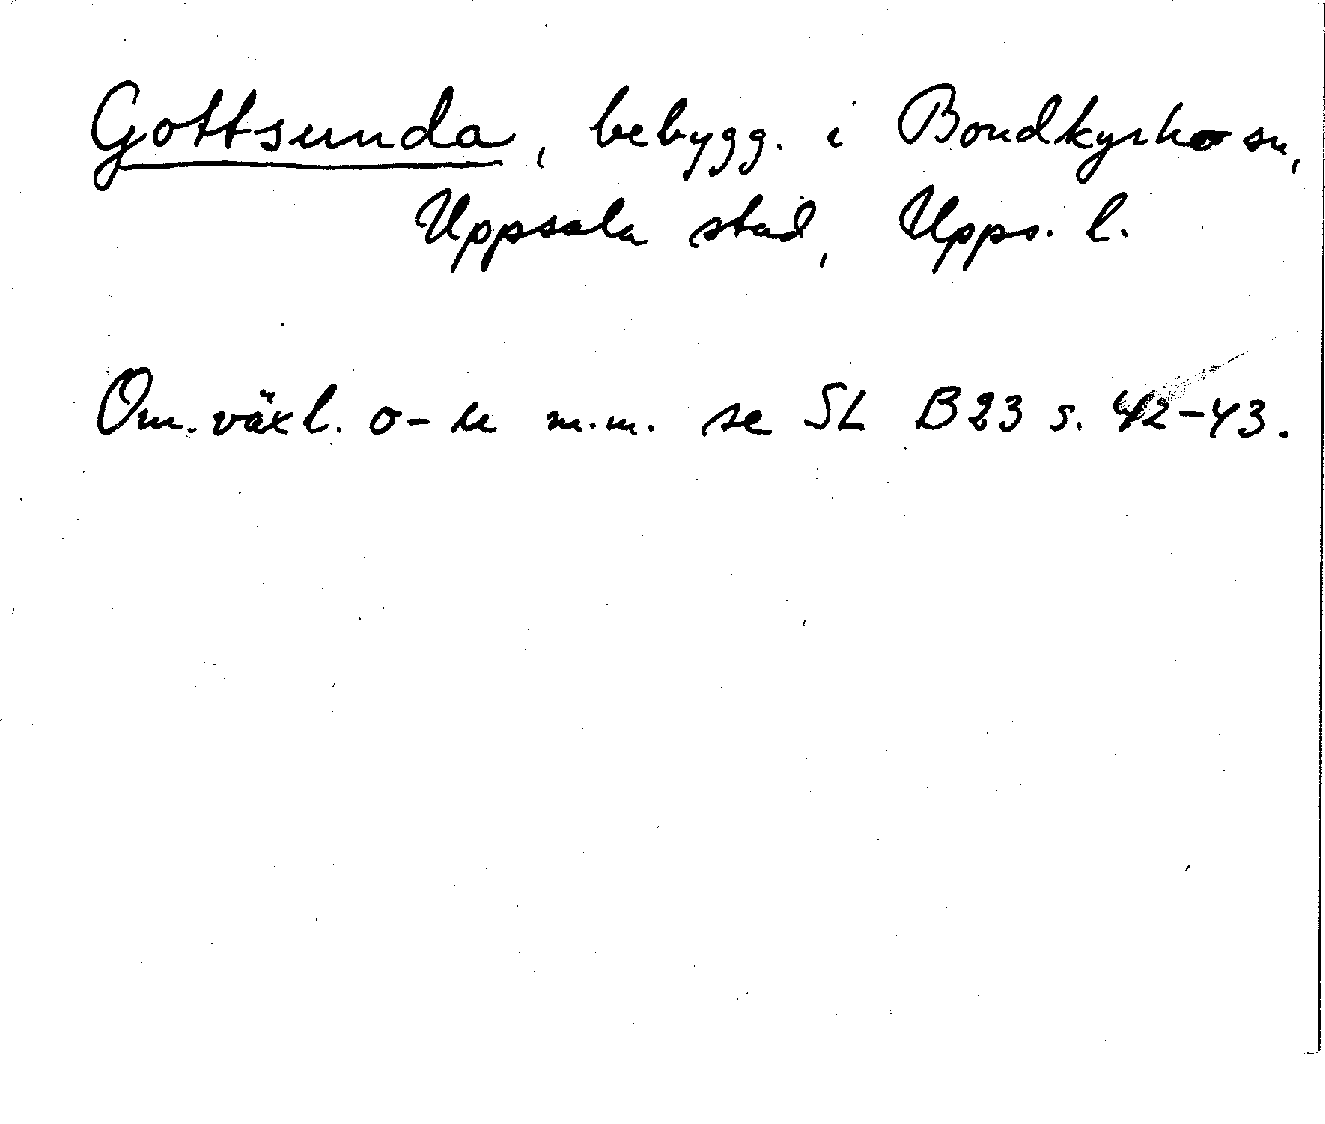 Gottsunda, bebygg. i Bondkyrko sn,
Uppsala stad, Upps. l.
Om växl. o-u m.m. se SL B23 s. 42-43.